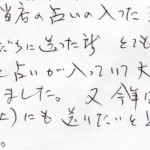 当店の占いの入った
だちに送った所 とても
と占いが入っていて大
ました。 又 今年
上)にも 送りたいと
。